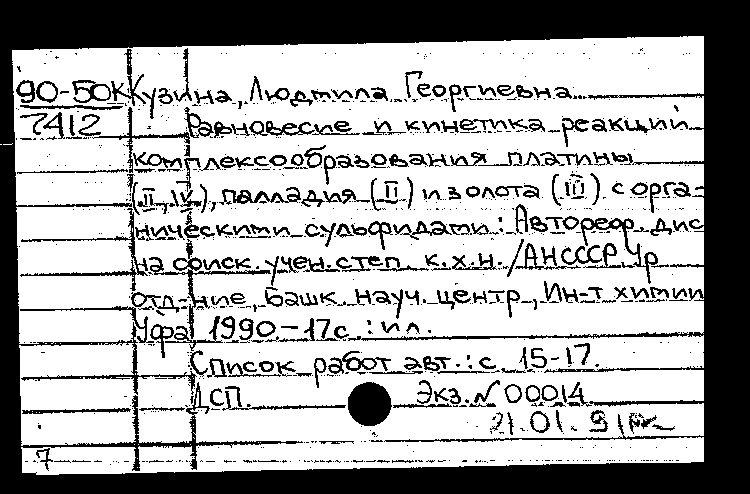 90-50К Кузина, Людмила Георгиевна
7412 Равновесие и кинетика реакций
комплексообразования платины
(II, IV), палладия (II) и золота (III) с орга-
ническими сульфидами: Автореф. дис
на соиск. учен. степ. к.х.н. / АН СССР, Ур
отд-ние, Башк. науч. центр, Ин-т химии
Уфа 1990.-17с. : ил.
Список работ авт.: с. 15-17.
ДСП. Экз. № 00014
21.01.91
7